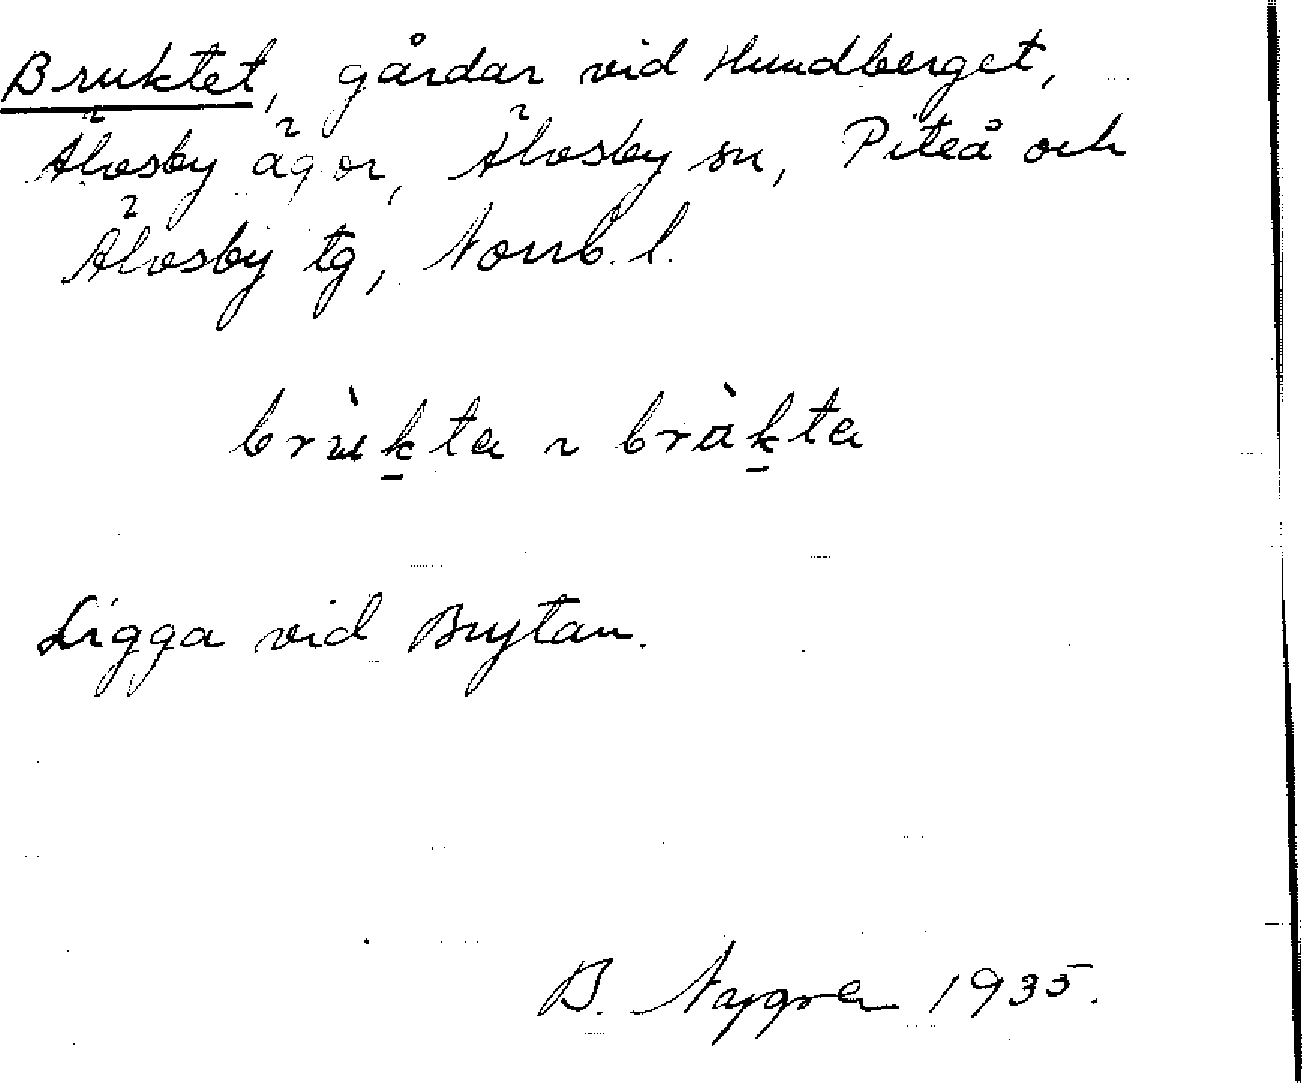 Bruktet, gårdar vid Hundberget,
Älvsby ägor, Älvsby sn, Piteå och
Älvsby tg, Norrb. l.
brùk̠ta ~ bràk̠ta
Ligga vid Brytan.
B. Nygren 1935.